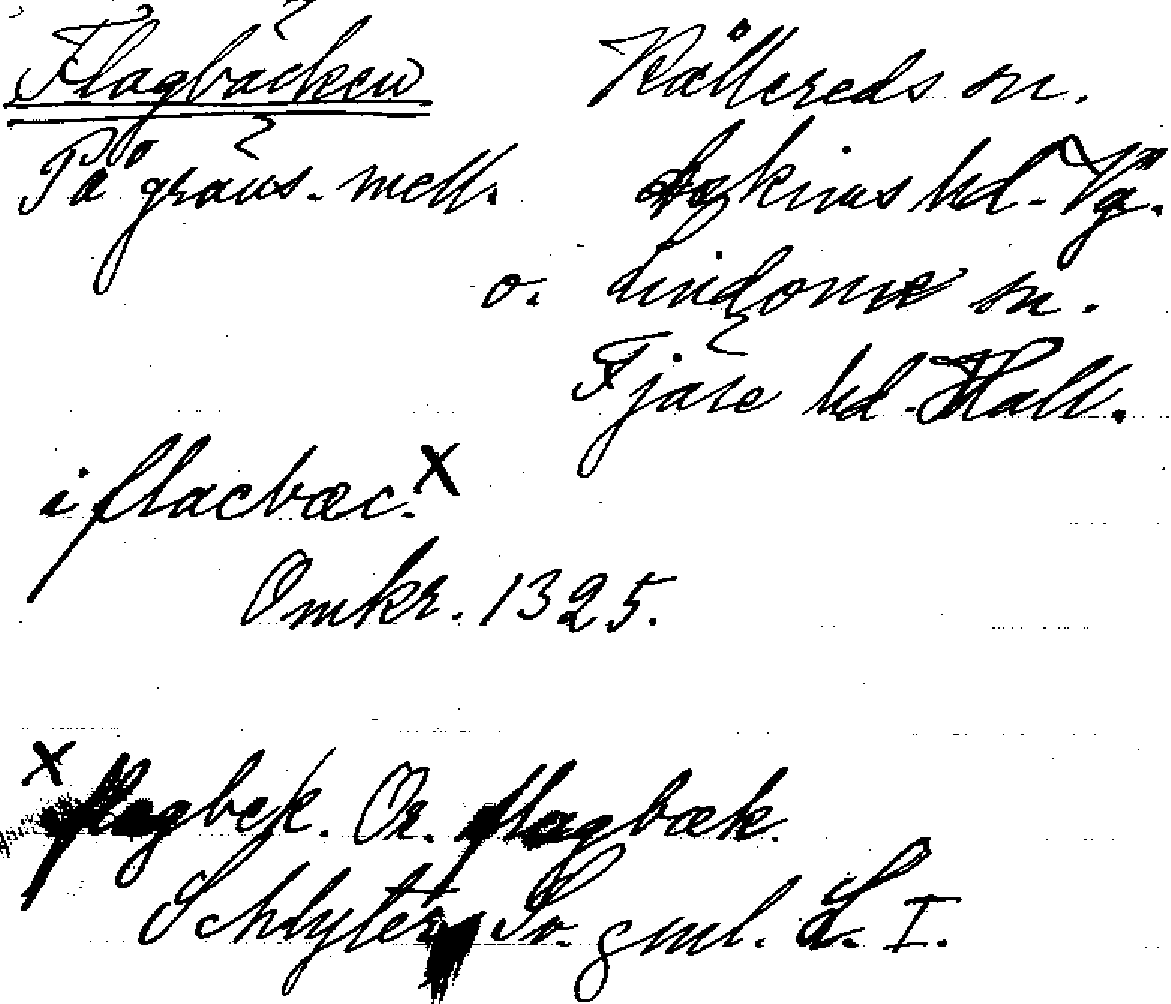 Flagbäcken Kållereds sn.
På gräns. mell. Askims hd. Vg.
o. Lindome sn.
Fjäre hd. Hall.
i flacbæc. x
Omkr. 1325.
x flagbek. Or. flagbæk.
Schlyter, Sv. gml. L. I.